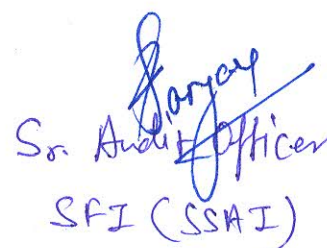 Sanjay
Sr. Audit Officer
SFI (SSAI)